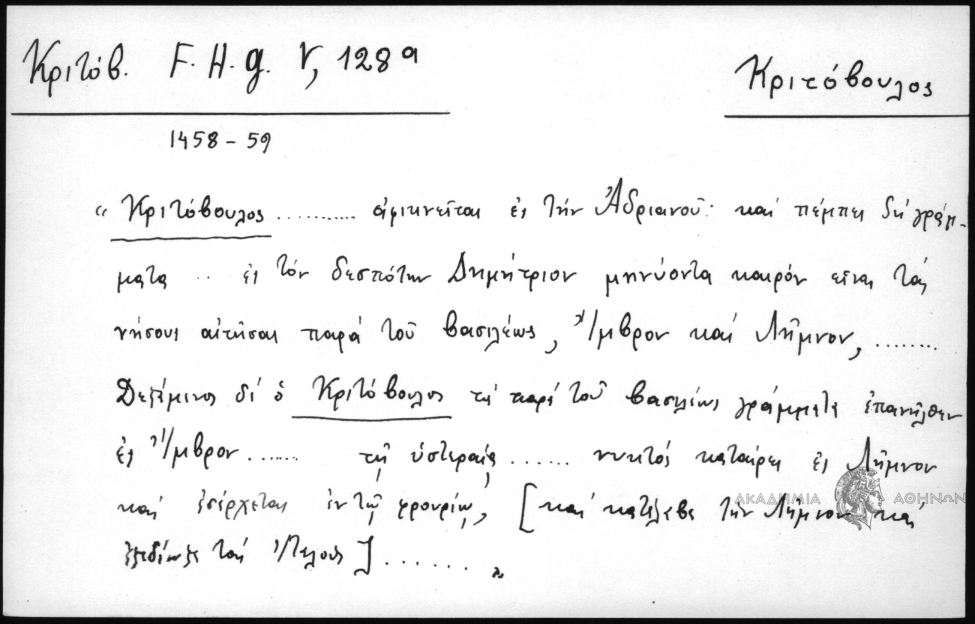 Κριτόβ. F. H. g. V, 128ᵃ
Κριτόβουλος
1458 - 59
« Κριτόβουλος ........... ἀφικνεῖται ἐς τὴν Ἀδριανοῦ· καὶ πέμπει δὴ γράμ-
ματα .. ἐς τὸν δεσπότην Δημήτριον μηνύοντα καιρὸν εἶναι τὰς
νήσους αἰτῆσαι παρὰ τοῦ βασιλέως, Ἴμβρον καὶ Λῆμνον, ........
Δεξάμενος δὲ ὁ Κριτόβουλος τὰ παρὰ τοῦ βασιλέως γράμματα ἐπανῆλθεν
ἐς Ἴμβρον ....... τῇ ὑστεραίᾳ ...... νυκτὸς καταίρει ἐς Λῆμνον
καὶ ἐσέρχεται ἐν τῷ φρουρίῳ, [καὶ κατέλαβε τὴν Λῆμνον καὶ
ἐξεδίωξε τοὺς Ἰταλοὺς] ...... »
ΑΚΑΔΗΜΙΑ ΑΘΗΝΩΝ